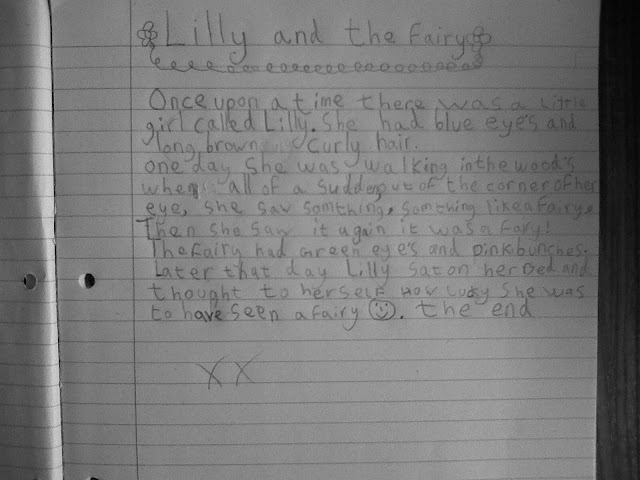 Lilly and the fairy
Once upon a time there was a little
girl called Lilly. She had blue eye's and
long brown curly hair.
one day she was walking in the wood's
when all of a sudden out of the corner of her
eye, she saw somthing, somthing like a fairy.
Then she saw it again it was a fairy!
The fairy had green eye's and pink bunches.
Later that day Lilly sat on her bed and
thought to herself how lucky she was
to have seen a fairy ☺. the end
XX